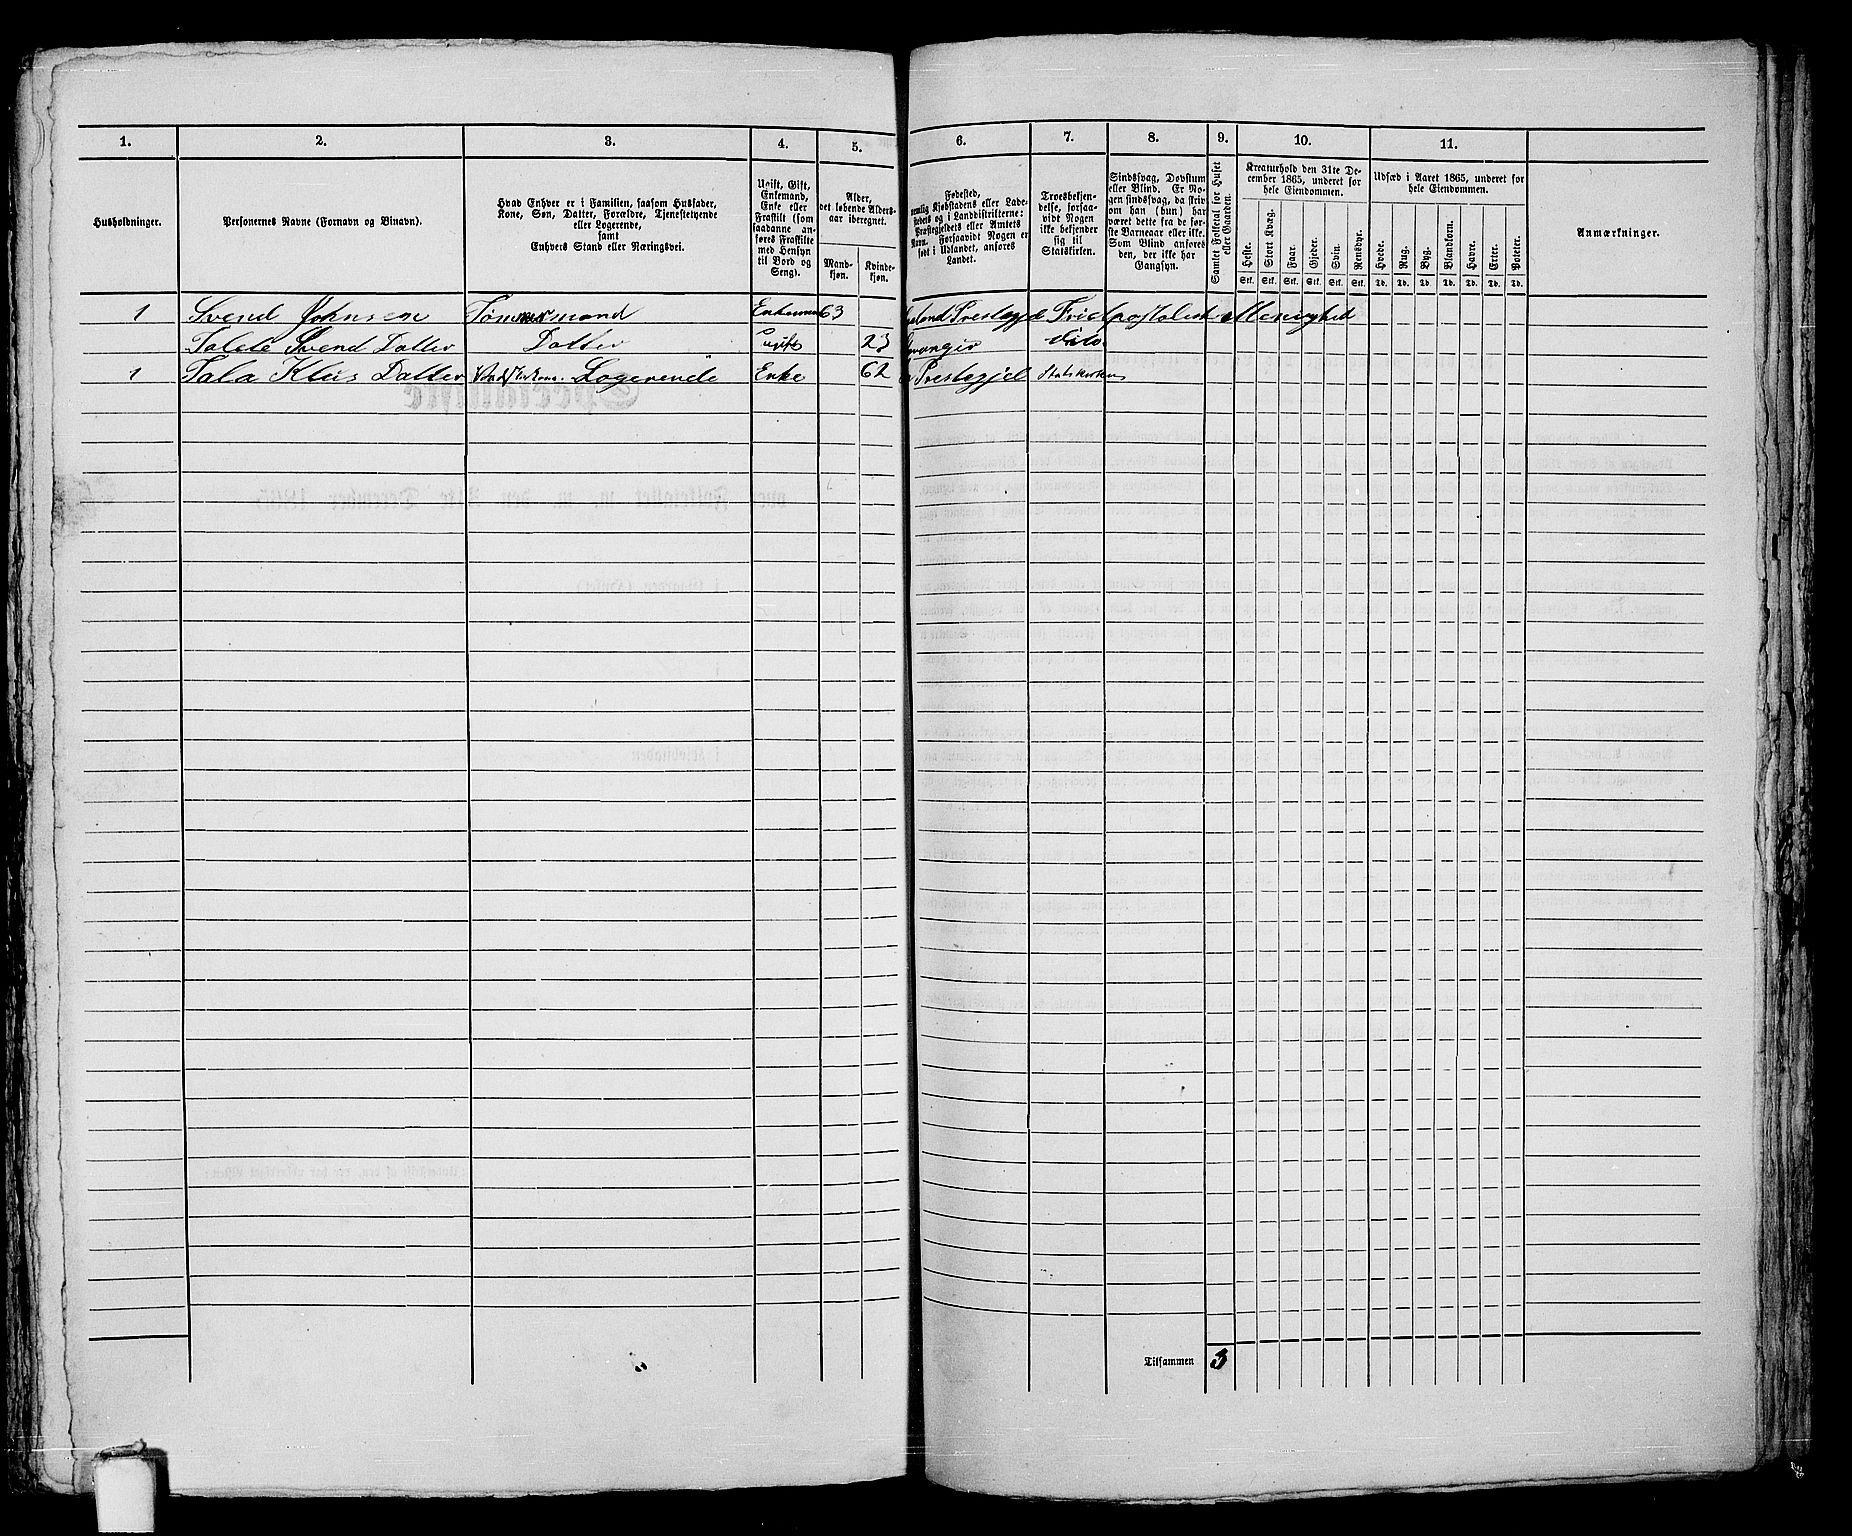 1. 2. 3. 4. 5. 6. 7. 8. 9. 10. 11.
Husholdninger.
Personernes Navne (Fornavn og Binavn).
Hvad Enhver er i Familien, saasom Husfader,
Kone, Søn, Datter, Forældre, Tjenestetyende
eller Logerende,
samt
Enhvers Stand eller Næringsvei.
Ugift, Gift,
Enkemand,
Enke eller
Fraskilt (som
saadanne an-
føres Fraskilte
med Hensyn
til Bord og
Seng).
Alder,
det løbende Alders-
aar iberegnet.
Mand-
kjøn.
Kvinde-
kjøn.
Fødested,
nemlig Kjøbstadens eller Lade-
stedets og i Landdistrikterne:
Præstegjeldets eller Amtets
Navn. Forsaavidt Nogen er
født i Udlandet, anføres
Landet.
Troesbekjen-
delse, forsaa-
vidt Nogen
ikke bekjender
sig til
Statskirken.
Sindssvag, Døvstum
eller Blind. Er No-
gen sindssvag, da skriv
om han (hun) har
været dette fra de før-
ste Barneaar eller ikke.
Som Blind anføres
den, der ikke har
Gangsyn.
Samlet Folketal for Huset
eller Gaarden.
Kreaturhold den 31te De-
cember 1865, underet for
hele Eiendommen.
Heste. Stort Kvæg. Faar. Gjeder. Svin. Rensdyr.
Stk. Stk. Stk. Stk. Stk. Stk.
Udsæd i Aaret 1865, underet for
hele Eiendommen.
Hvede. Rug. Byg. Blandkorn. Havre. Erter. Poteter.
Td. Td. Td. Td. Td. Td. Td.
Anmærkninger.
1 Svend Johnsen Tømmermand 63 Præstegje Friapostolisk Menighed
Talete Svend Datter Datter ugift 23 dito
1 Tala Klus Datter Logerende Enke 62 Prestegjel Statskirken
Tilsammen 3